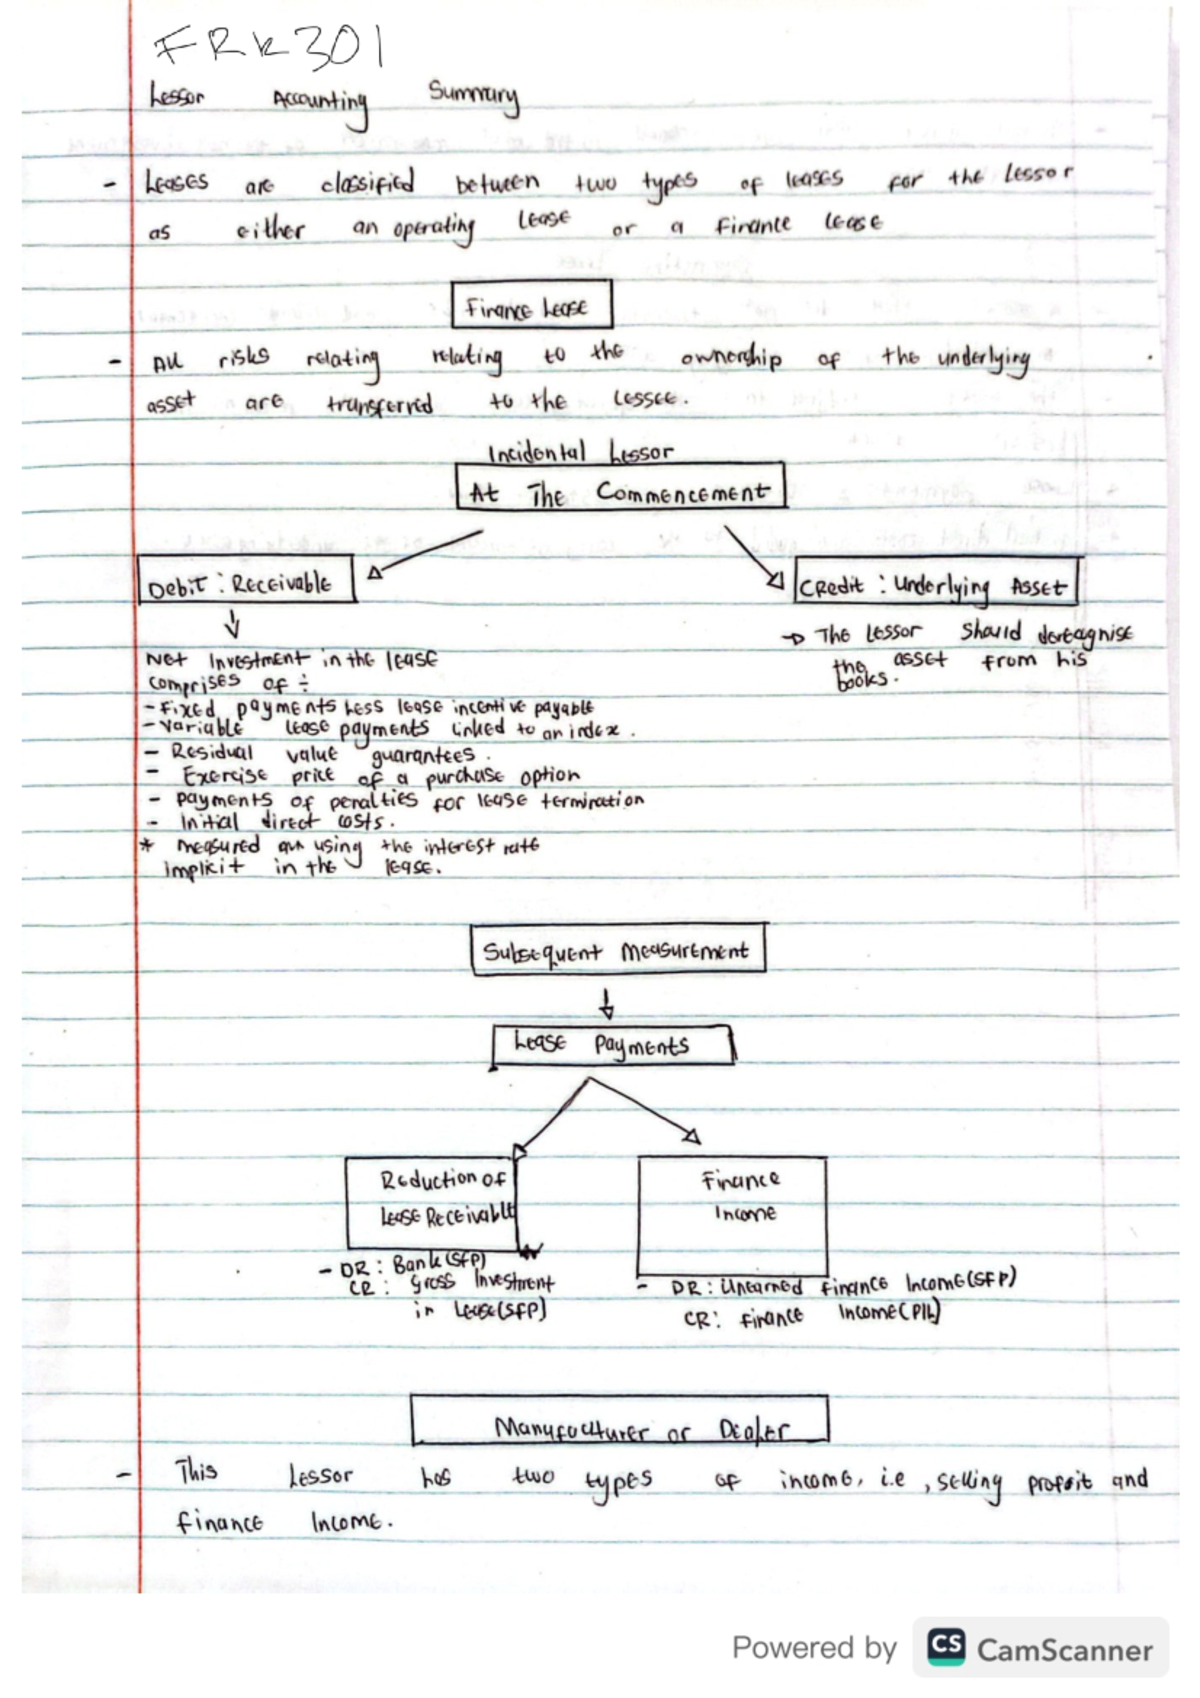 FRK301
Lessor Accounting Summary
- Leases are classified between two types of leases for the lessor
as either an operating lease or a finance lease
Finance Lease
- All risks relating relating to the ownership of the underlying
asset are transferred to the lessee.
Incidental Lessor
At The Commencement
Debit : Receivable
Credit : Underlying Asset
Net Investment in the lease
comprises of ÷
- Fixed payments Less lease incentive payable
- Variable lease payments linked to an index.
- Residual value guarantees.
- Exercise price of a purchase option
- payments of penalties for lease termination
- Initial direct costs.
* measured using the interest rate
implicit in the lease.
→ The lessor should derecagnise
the asset from his
books.
Subsequent Measurement
Lease Payments
Reduction of
Lease Receivable
- DR : Bank (SFP)
CR : Gross Investment
in Lease (SFP)
Finance
Income
- DR : Unearned Finance Income (SFP)
CR : Finance Income (P/L)
Manufacturer or Dealer
- This Lessor has two types of income, i.e , selling profit and
finance Income.
Powered by CS CamScanner